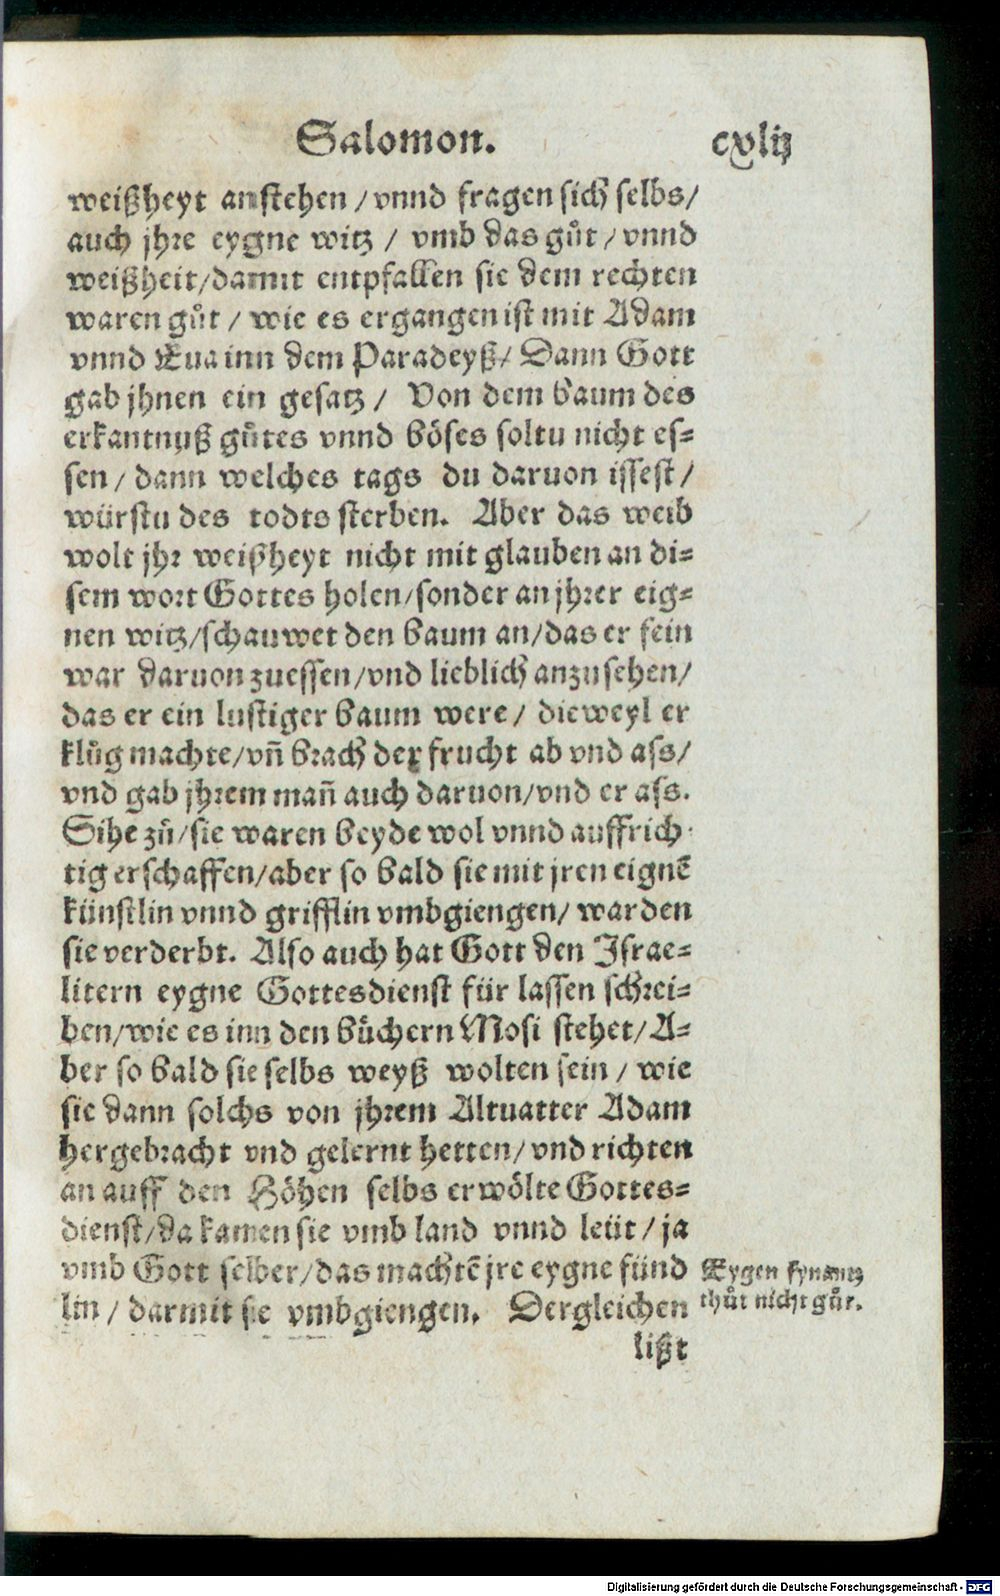 Salomon. cxlij
weißheyt anstehen / vnnd fragen sich selbs /
auch jhre eygne witz / vmb das gůt / vnnd
weißheit / damit entpfallen sie dem rechten
waren gůt / wie es ergangen ist mit Adam
vnnd Eua inn dem Paradeyß / Dann Gott
gab jhnen ein gesatz / Von dem baum des
erkantnuß gůtes vnnd böses soltu nicht es-
sen / dann welches tags du daruon issest /
würstu des todts sterben. Aber das weib
wolt jhr weißheyt nicht mit glauben an di-
sem wort Gottes holen / sonder an jhrer eig-
nen witz / schauwet den baum an / das er fein
war daruon zuessen / vnd lieblich anzusehen /
das er ein lustiger baum were / dieweyl er
klůg machte / vñ brach der frucht ab vnd ass /
vnd gab jhrem mañ auch daruon / vnd er ass.
Sihe zů / sie waren beyde wol vnnd auffrich-
tig erschaffen / aber so bald sie mit jren eignē
künstlin vnnd grifflin vmbgiengen / warden
sie verderbt. Also auch hat Gott den Israe-
litern eygne Gottesdienst für lassen schrei-
ben / wie es inn den bůchern Mosi stehet / A-
ber so bald sie selbs weyß wolten sein / wie
sie dann solchs von jhrem Altuatter Adam
hergebracht vnd gelernt hetten / vnd richten
an auff den Höhen selbs erwölte Gottes-
dienst / da kamen sie vmb land vnnd leüt / ja
vmb Gott selber / das machtē jre eygne fünd
lin / darmit sie vmbgiengen. Dergleichen
lißt
Eygen fynantz
thůt nicht gůt.
Digitalisierung gefördert durch die Deutsche Forschungsgemeinschaft - DFG